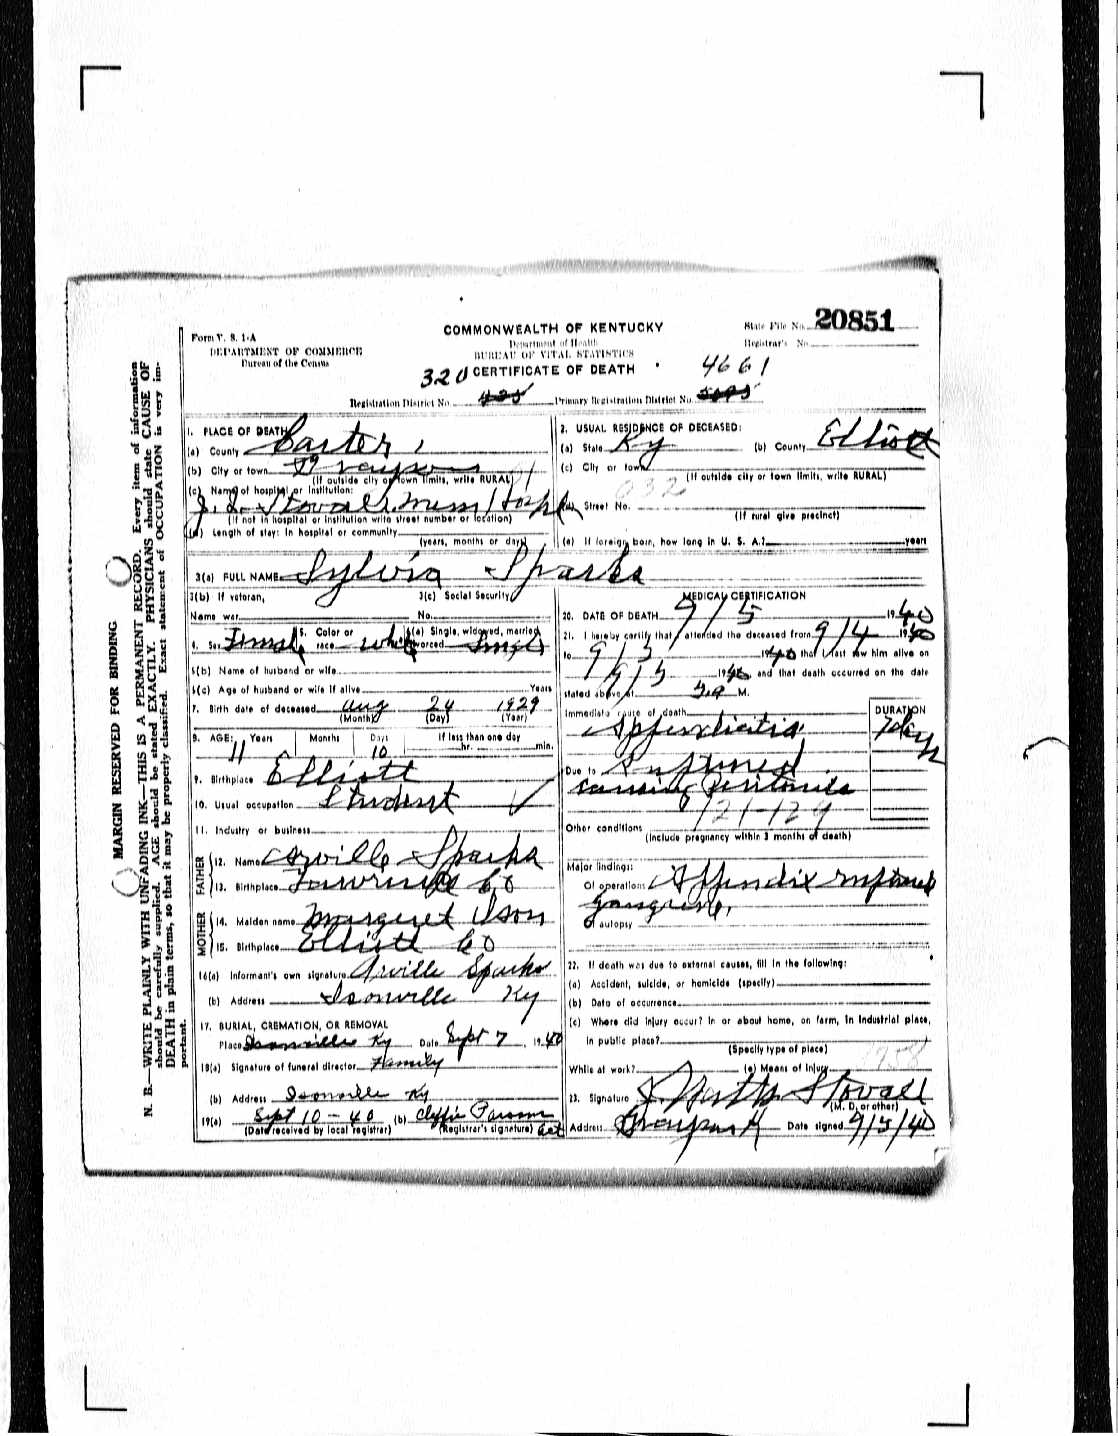 COMMONWEALTH OF KENTUCKY
State File No. 20851
Form V. S. 1-A
DEPARTMENT OF COMMERCE
Bureau of the Census
Department of Health
BUREAU OF VITAL STATISTICS
Registrar's No.
320 CERTIFICATE OF DEATH 4661
Registration District No. Primary Registration District No.
MARGIN RESERVED FOR BINDING
N. B.—WRITE PLAINLY WITH UNFADING INK—THIS IS A PERMANENT RECORD. Every item of information
should be carefully supplied. AGE should be stated EXACTLY. PHYSICIANS should state CAUSE OF
DEATH in plain terms, so that it may be properly classified. Exact statement of OCCUPATION is very im-
portant.
1. PLACE OF DEATH
(a) County Carter
(b) City or town Grayson
(If outside city or town limits, write RURAL)
(c) Name of hospital or institution:
J. Q. Stovall Mem Hospl
(If not in hospital or institution write street number or location)
(d) Length of stay: In hospital or community
(years, months or days)
2. USUAL RESIDENCE OF DECEASED:
(a) State Ky (b) County Elliott
(c) City or town
(If outside city or town limits, write RURAL)
032
(d) Street No.
(If rural give precinct)
(e) If foreign born, how long in U. S. A.? years
3(a) FULL NAME Sylvia Sparks
3(b) If veteran, 3(c) Social Security
Name war No.
4. Sex Female 5. Color or race white 6(a) Single, widowed, married, divorced Single
6(b) Name of husband or wife
6(c) Age of husband or wife if alive Years
7. Birth date of deceased Aug 24 1929
(Month) (Day) (Year)
8. AGE: Years Months Days If less than one day
11 10 hr. min.
9. Birthplace Elliott
10. Usual occupation Student
11. Industry or business
FATHER
12. Name Arville Sparks
13. Birthplace Lawrence Co
MOTHER
14. Maiden name Margaret Ison
15. Birthplace Elliott Co
16(a) Informant's own signature Arville Sparks
(b) Address Isonville Ky
17. BURIAL, CREMATION, OR REMOVAL
Place Isonville Ky Date Sept 7, 1940
18(a) Signature of funeral director Family
(b) Address Isonville Ky
19(a) Sept 10-40 (b)
(Date received by local registrar) (Registrar's signature)
MEDICAL CERTIFICATION
20. DATE OF DEATH 9/5 1940
21. I hereby certify that I attended the deceased from 9/4 1940
to 9/5 1940 that I last saw him alive on
9/5 1940 and that death occurred on the date
stated above at M.
Immediate cause of death DURATION
Appendicitis 7 days
Due to Ruptured
causing Peritonitis
121-129
Other conditions
(Include pregnancy within 3 months of death)
Major findings:
Of operations Appendix ruptured
gangrene,
Of autopsy
22. If death was due to external causes, fill in the following:
(a) Accident, suicide, or homicide (specify)
(b) Date of occurrence
(c) Where did injury occur? In or about home, on farm, in industrial place,
in public place?
(Specify type of place)
While at work? (e) Means of Injury
23. Signature J. Watts Stovall
(M. D. or other)
Address Grayson K Date signed 9/5/40